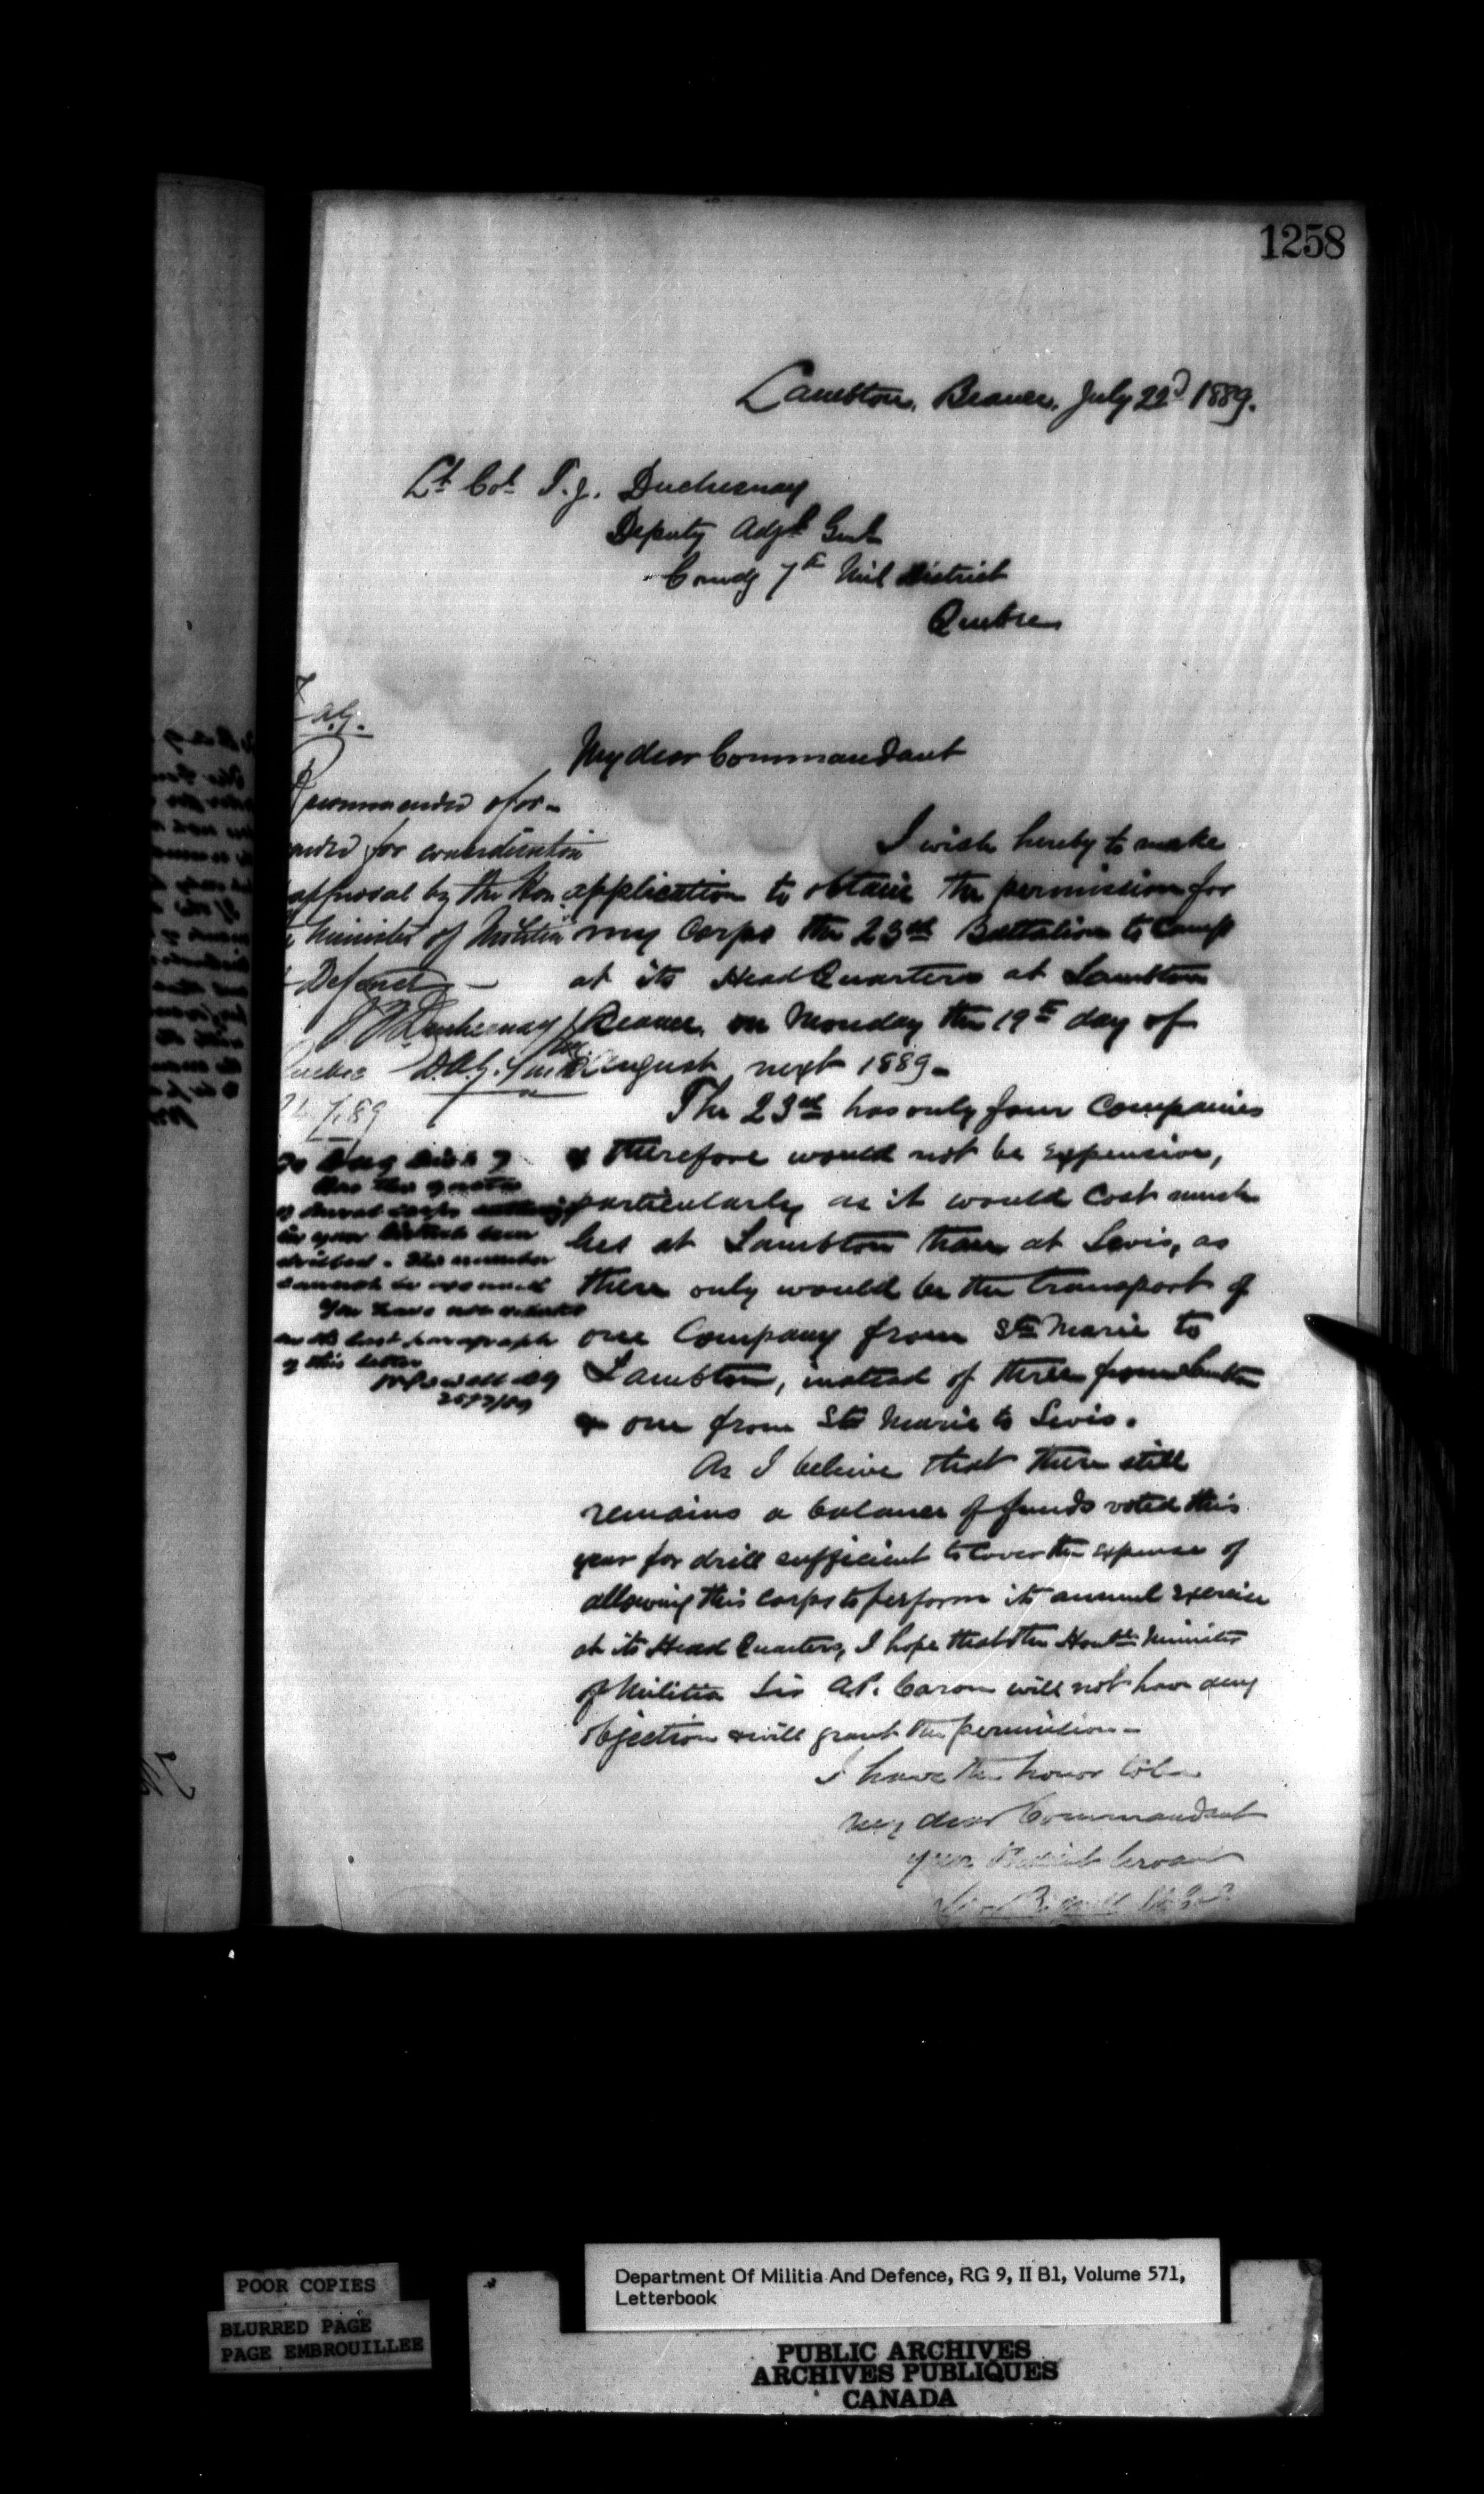 1258
Lambton, Beauce, July 22d 1889.
Lt Col T. J. Duchesnay
Deputy Adjt Genl
Comdg 7th Mil District
Quebec
My dear Commandant
I wish hereby to make
application to obtain the permission for
my Corps the 23rd Battalion to Camp
at its Head Quarters at Lambton
Beauce, on Monday the 19th day of
August next 1889.
The 23rd has only four Companies
& therefore would not be expensive,
particularly as it would cost much
less at Lambton than at Levis, as
there only would be the transport of
one Company from Ste Marie to
Lambton, instead of three from Lambton
& one from Ste Marie to Levis.
As I believe that there still
remains a balance of funds voted this
year for drill sufficient to cover the expense of
allowing this corps to perform its annual exercise
at its Head Quarters, I hope that the Honble Minister
of Militia Sir A.P. Caron will not have any
objection & will grant the permission -
I have the honor to be
My dear Commandant
your Servant
A.G.
Recommended & for-
for consideration
approval by the Hon.
Minister of Militia
Defence -
Duchesnay
D.A.G.
7/89
To DAG Dist 7
Has the quota
of rural corps
in your District been
drilled. The number
cannot be exceeded
You have not
on the last paragraph
of this letter
W Powell AG
25/7/89
POOR COPIES
BLURRED PAGE
PAGE EMBROUILLEE
Department Of Militia And Defence, RG 9, II B1, Volume 571,
Letterbook
PUBLIC ARCHIVES
ARCHIVES PUBLIQUES
CANADA